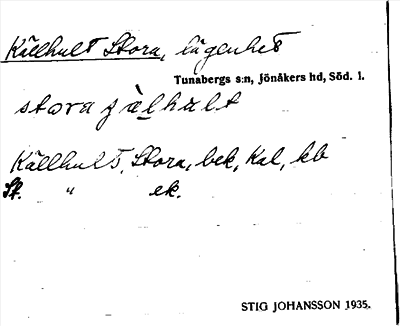 Källhult Stora, lägenhet
Tunabergs s:n, Jönåkers hd, Söd. l.
stora jàlhult
Källhult, Stora, bek, Kal, kb
St. " ek.
STIG JOHANSSON 1935.